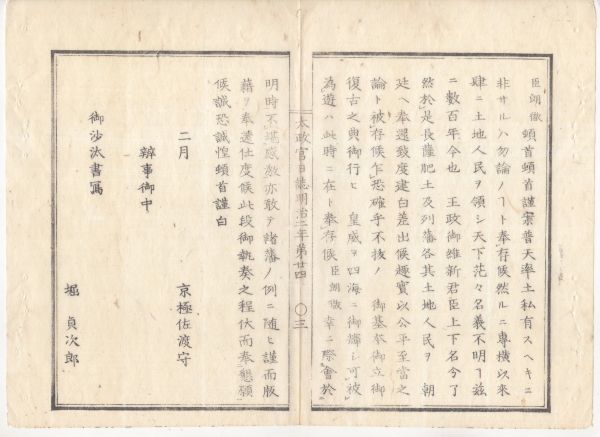 臣朗徹頓首頓首謹案普天率土私有スヘキニ
非サルハ勿論ノヿト奉存候然ルニ專横以来
肆ニ土地人民ヲ領シ天下茫々名義不明ヿ茲
ニ數百年今也　王政御維新君臣上下名分了
然於是長薩肥土及列藩各其土地人民ヲ　朝
廷ヘ奉還致度建白差出候趣實以公平至當之
論ト被存候乍恐確乎不拔ノ　御基本御立御
復古之典御行ヒ　皇威ヲ四海ニ御燿シ可被
為遊ハ此時ニ在ト奉存候　臣朗徹幸ニ際會於
太政官日誌明治二年第廿四　〇三
明時不堪感激亦敢ヲ諸藩ノ例ニ随ヒ謹而版
籍ヲ奉還仕度候此段御執奏之程伏而奉懇願
候誠恐誠惶頓首謹白
二月　京極佐渡守
辨事御中
御沙汰書寫
堀　貞次郎